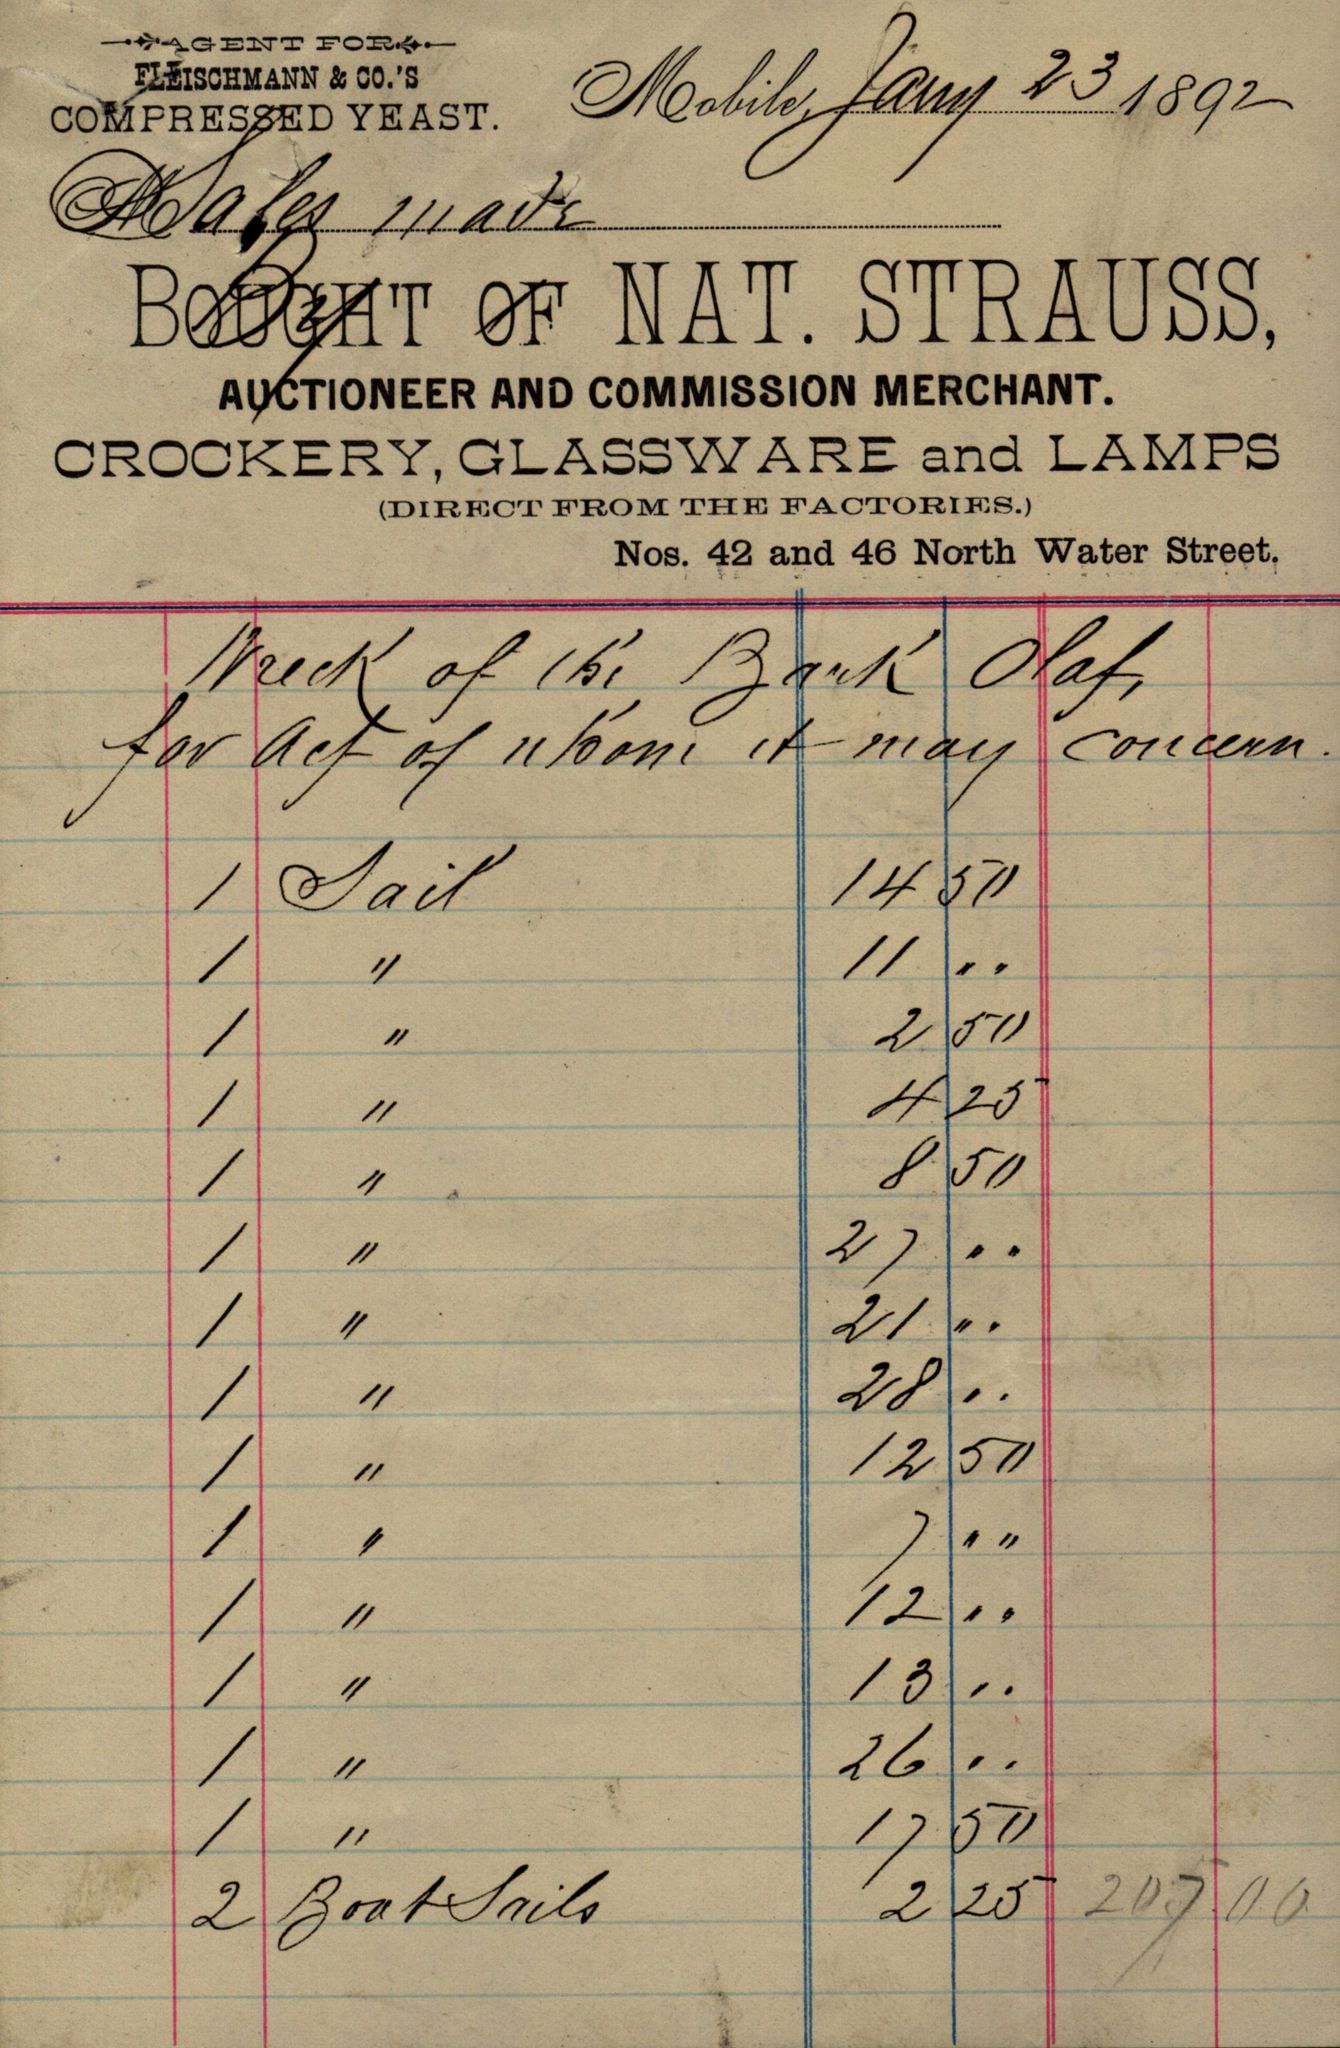 AGENT FOR
FLEISCHMANN & CO.'S
COMPRESSED YEAST.
Mobile, Jany 23 1892
Sales made
BOUGHT OF NAT. STRAUSS,
By
AUCTIONEER AND COMMISSION MERCHANT.
CROCKERY, GLASSWARE and LAMPS
(DIRECT FROM THE FACTORIES.)
Nos. 42 and 46 North Water Street.
Wreck of the Bark Olaf,
for Act of whom it may concern.
1 Sail 14 50
1 " 11 ..
1 " 2 50
1 " 4 25
1 " 8 50
1 " 27 ..
1 " 21 ..
1 " 28 ..
1 " 12 50
1 " 7 ..
1 " 12 ..
1 " 13 ..
1 " 26 ..
1 " 17 50
2 Boat Sails 2 25 207 00